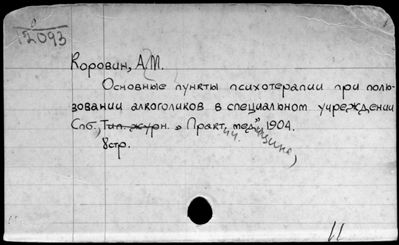 12093
Коровин, А.М.
Основные пункты психотерапии при поль-
зовании алкоголиков в специальном учреждении
Спб, Тип. журн. "Практич. медицина", 1904.
8стр.
11